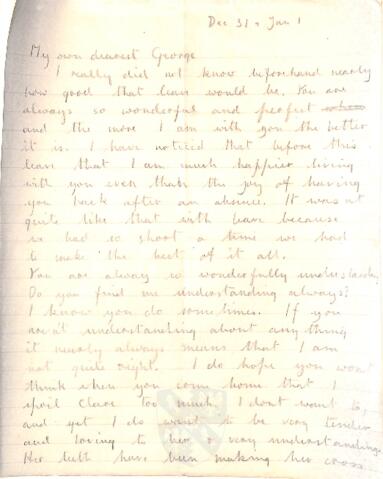 Dec 31 & Jan 1
My own dearest George
I really did not know beforehand nearly
how good that leave would be. You are
always so wonderful and perfect
and the more I am with you the better
it is. I have noticed that before this
leave that I am much happier living
with you even than the joy of having
you back after an absence. It was not
quite like that with leave because
we had so short a time we had
to make the best of it all.
You are always so wonderfully understanding.
Do you find me understanding always?
I know you do sometimes. If you
aren't understanding about anything
it nearly always means that I am
not quite right. I do hope you wont
think when you come home that I
spoil Clare too much. I dont want to,
and yet I do want to be very tender
and loving to her & very understanding.
Her teeth have been making her cross